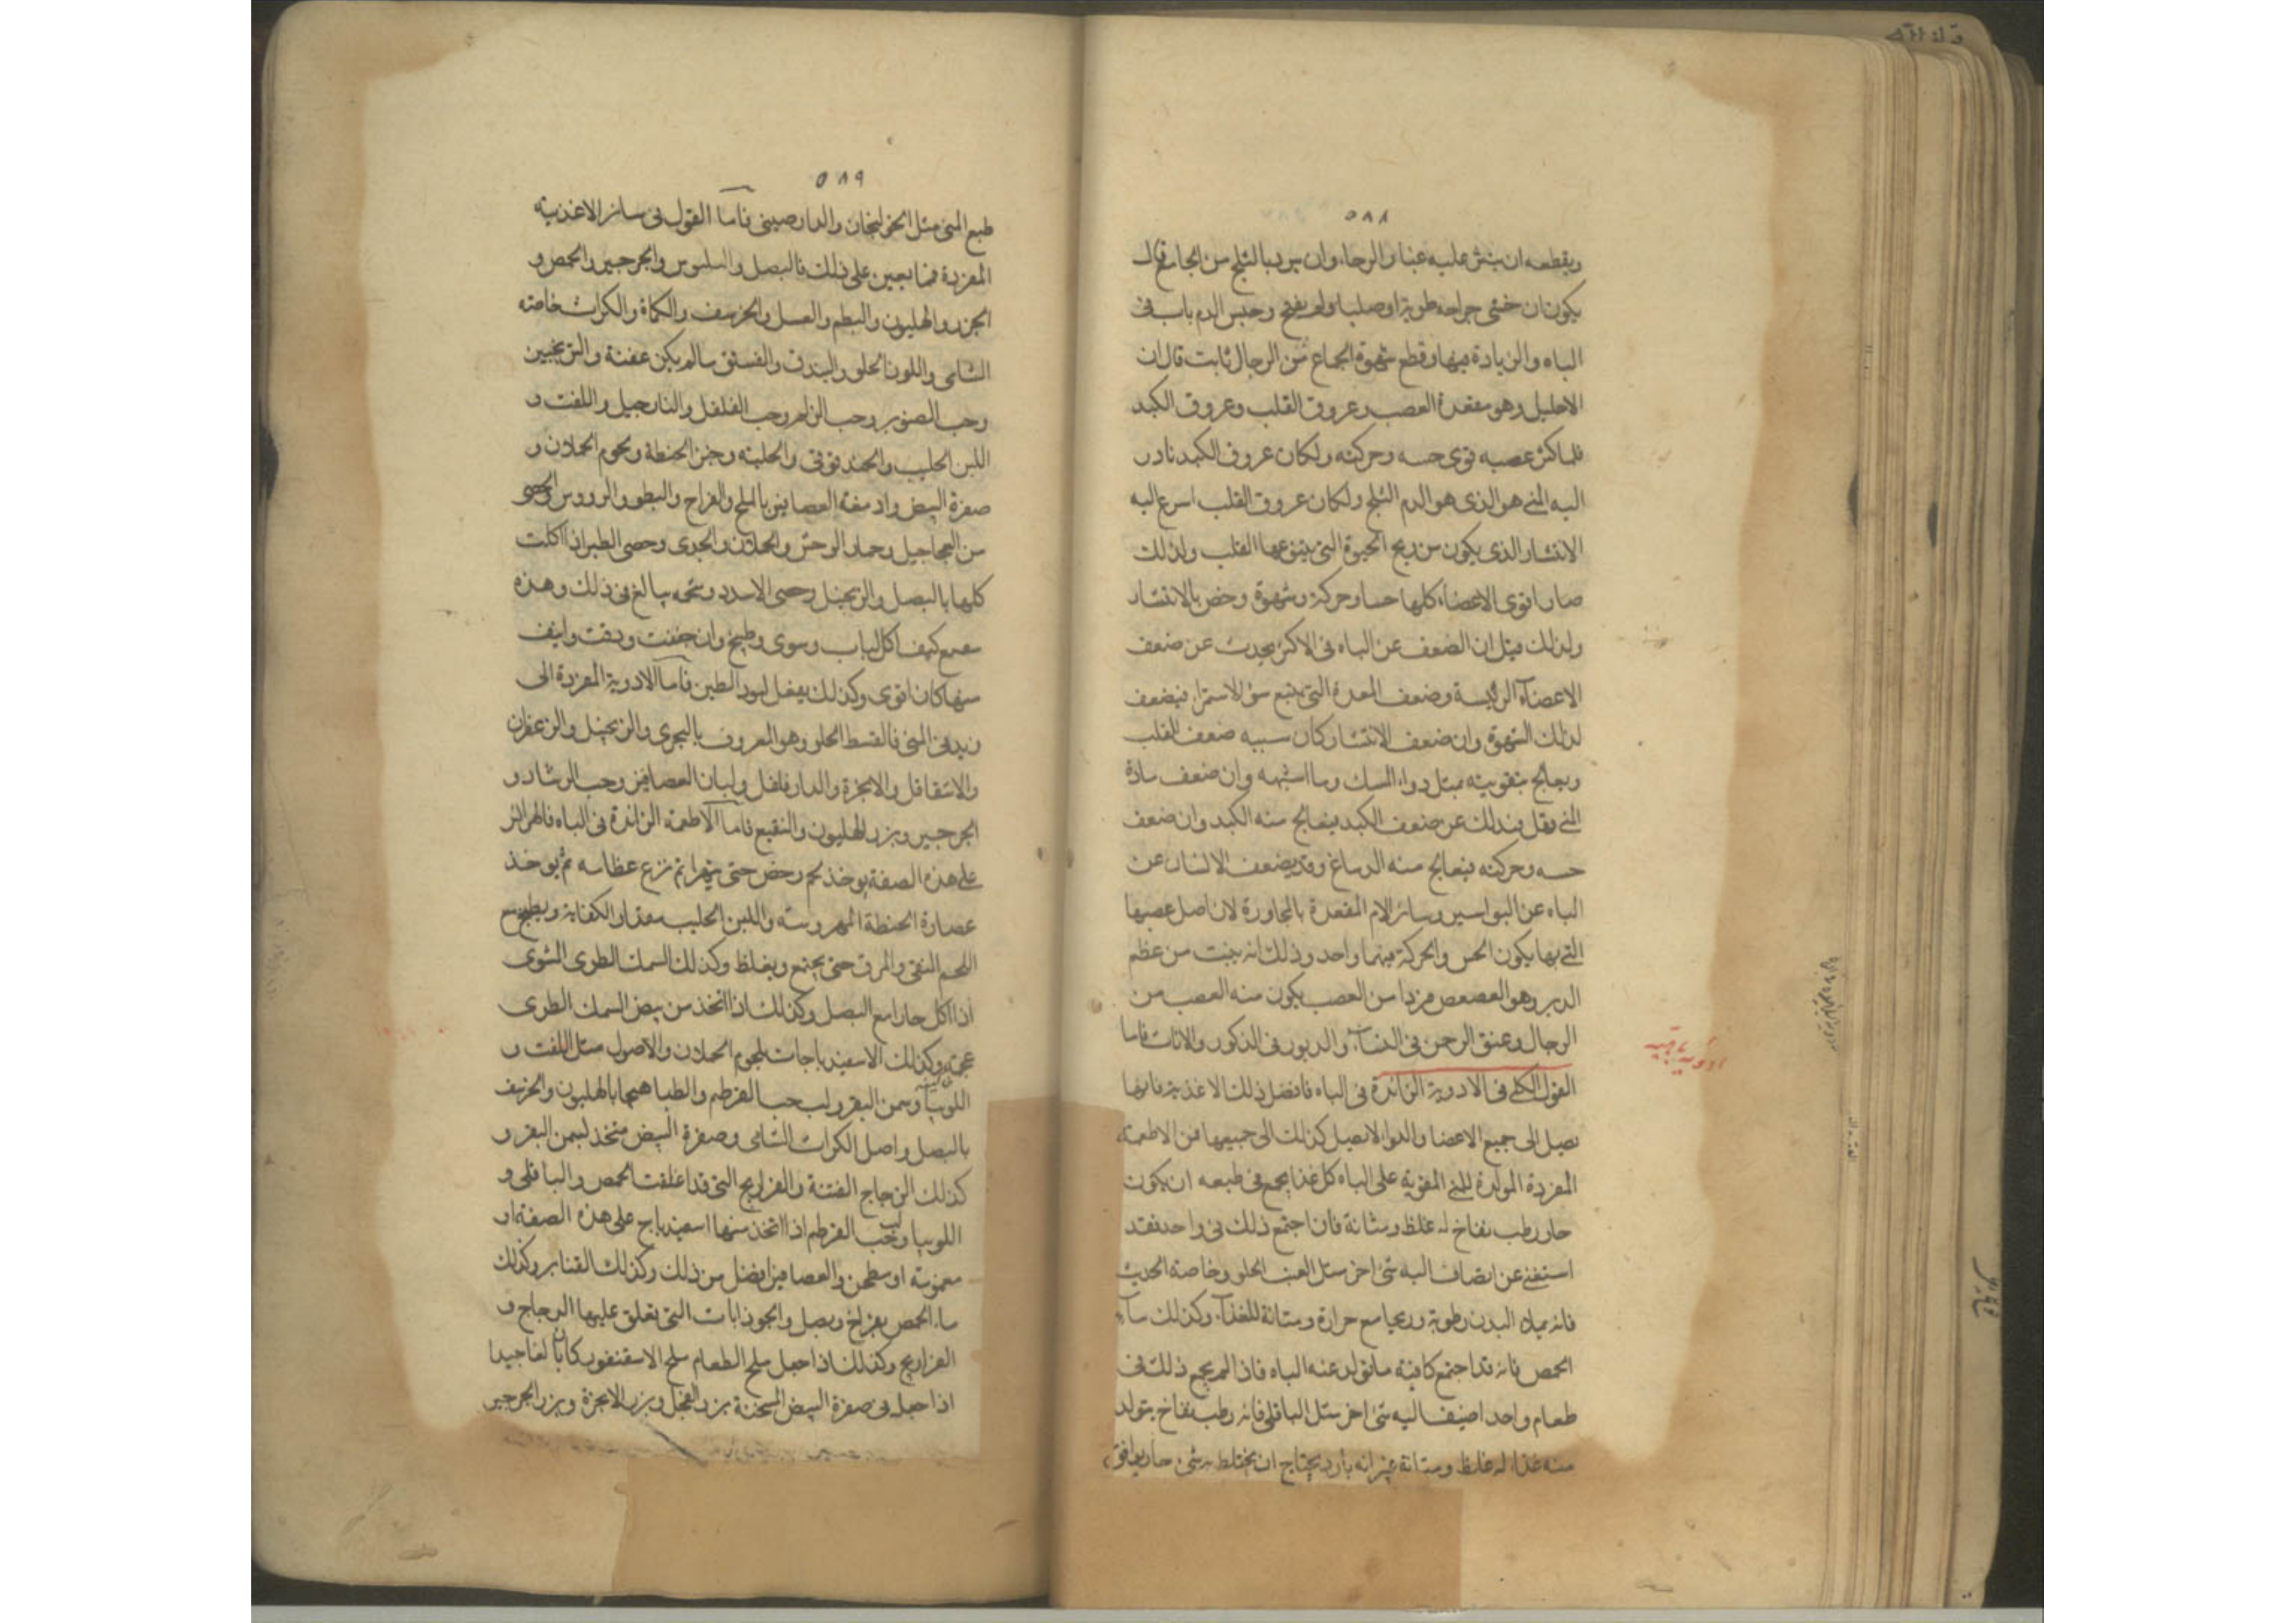 ٥٨٨
ويقطعه ان ينثر عليه غبار الرحا وان يبرد بالثلج من الخارج قال
يكون ان خشى جراحه طرية او صلبا ولم يفتح وحبس الدم باب فى
الباه والزيادة فيها وقطع شهوة الجماع من الرجال ثابت قال ان
الاحليل وهو معقدة العصب وعروق القلب وعروق الكبد
فلما كثر عصبه قوى حسه وحركته ولكان عروق الكبد نادر
اليه المنى هو الذى هو الدم الثلج ولكان عروق القلب اسرع اليه
الانتشار الذى يكون من ريح الحيوة التى ينبوعها القلب ولذلك
صار اقوى الاعضاء كلها حسا وحركة وشهوة وخص بالانتشار
ولذلك قيل ان الضعف عن الباه فى الاكثر يحدث عن ضعف
الاعضاء الرئيسة وضعف المعدة التى يتبع سؤ الاستمرا فيضعف
لذلك الشهوة وان ضعف الانتشار كان سببه ضعف القلب
ويعالج بتقويته بمثل دواء المسك وما اشبهه وان ضعف مادة
المنى وقل فذلك عن ضعف الكبد فيعالج منه الكبد وان ضعف
حسه وحركته فيعالج منه الدماغ وقد يضعف الانسان عن
الباه عن البواسير وسائر الام المقعدة بالمجاورة لان اصل عصبها
التى بها يكون الحس والحركة فيهما واحد وذلك انه ينبت من عظم
الدبر وهو العصعص فرد من العصب يكون منه العصب من
الرجال وعنق الرحم فى النساء والدبور فى الذكور والاناث فاما
ادوية باهية
القول الكلى فى الادوية الزائدة فى الباه فافضل ذلك الاغذية فانها
تصل الى جميع الاعضا والدوا لا يصل كذلك الى جميعها فمن الاطعمة
المفردة المولدة للمنى المقوية على الباه كل غذا يجمع فى طبعه ان يكون
حار رطب نفاخ له غلظ ومتانة فان اجتمع ذلك فى واحد فقد
استغنى عن ايضاف اليه شئ اخر مثل العنب الحلو وخاصة الحديث
فانه يملا البدن رطوبة وريحا مع حرارة ومتانة للغذاء وكذلك ماء
الحمص فانه قد اجتمع كافيته ما تولد عنه الباه فاذا لم يجمع ذلك فى
طعام واحد اضيف اليه شئ اخر مثل الباقلى فانه رطب نفاخ يتولد
منه غذا له غلظ ومتانة غير انه بارد يحتاج ان يختلط به شئ حار يوافق
٥٨٩
طبع المنى مثل الخولنجان والدارصينى فاما القول فى سائر الاغذية
المفردة فما يعين على ذلك فالبصل والبلبوس والجرجير والحمص و
الجزر والهليون والبطم والعسل والحرشف والكماة والكراث خاصة
الشامى واللوز الحلو والبندق والفستق ما لم يكن عفنة والترنجبين
وحب الصنوبر وحب الزلم وحب الفلفل والنارجيل واللفت و
اللبن الحليب والحندقوقى والحلبة وخبز الحنطة ولحوم الحملان و
صفرة البيض وادمغة العصافير بالملح والفراخ والبطو والرووس والخصى
من العجاجيل وحمار الوحش والحملان والجدى وخصى الطير اذا اكلت
كلها بالبصل والزنجبيل وخصى الاسد وشحمه يبالغ فى ذلك وهذه
كيف اكل الباب وسوى وطبخ وان جففت ودقت وايف
منها كان اقوى وكذلك يفعل لبود الطين فاما الادوية المفردة التى
يزيد فى المنى فالقسط الحلو وهو المعروف بالبحرى والزنجبيل والزعفران
والاشقاقل والانجرة والدارفلفل ولسان العصافير وحب الرشاد و
الجرجير وبزر الهليون والنقيع فاما الاطعمة الزائدة فى الباه فالهرائر
على هذه الصفة يوخذ لحم رخص حتى يتهرا ثم نزع عظامه ثم يوخذ
عصارة الحنطة المهروسة واللبن الحليب مقدار الكفاية ويطبخ مع
اللحم النقى والمرق حتى يجتمع ويغلظ وكذلك السمك الطرى المشوى
اذا اكل حارا مع البصل وكذلك اذا اتخذ من بيض السمك الطرى
عجة وكذلك الاسفيذباجات بلحوم الحملان والاصول مثل اللفت و
اللوبيا وسمن البقر ولب حب القرطم والطباهيجا بالهليون والحرشف
بالبصل واصل الكراث الشامى وصفرة البيض متخذ بسمن البقر و
كذلك الدجاج الفتنة والفراريج التى قد اغلقت الحمص والباقلى و
اللوبيا وحب القرطم اذا اتخذ منها اسفيذباج على هذه الصفة او
مغموسة او مطجن والعصافير افضل من ذلك وكذلك القنابر وكذلك
ماء الحمص بفراخ وبصل والجوذابات التى يعلق عليها الدجاج و
الفراريج وكذلك اذا جعل ملح الطعام ملح الاسقنقور كان بالغا جيدا
اذا جعل فى صفرة البيض المسخنة بزر الفجل وبزر الانجرة وبزر الجرجير